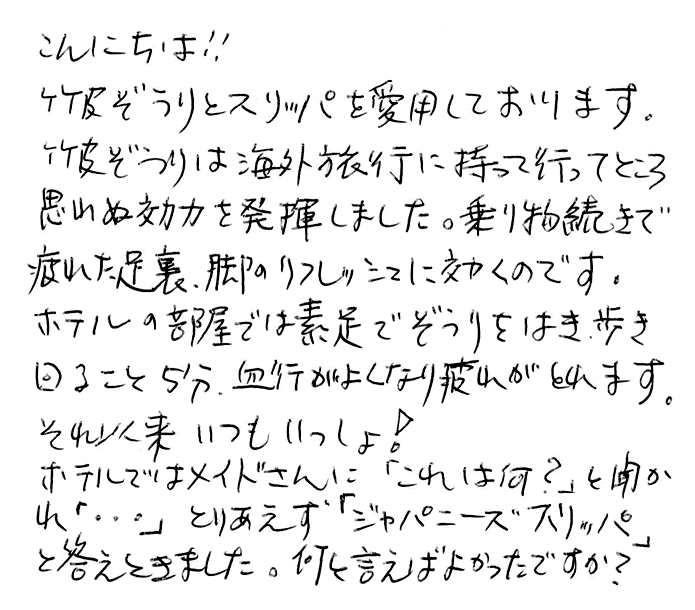 こんにちは!!
竹皮ぞうりとスリッパを愛用しております。
竹皮ぞうりは海外旅行に持って行ってところ
思わぬ効力を発揮しました。乗り物続きで
疲れた足裏、脚のリフレッシュに効くのです。
ホテルの部屋では素足でぞうりをはき、歩き
回ること5分、血行がよくなり疲れがとれます。
それ以来いつもいっしょ!
ホテルではメイドさんに「これは何?」と聞か
れ「・・・」とりあえず「ジャパニーズスリッパ」
と答えときました。何と言えばよかったですか?